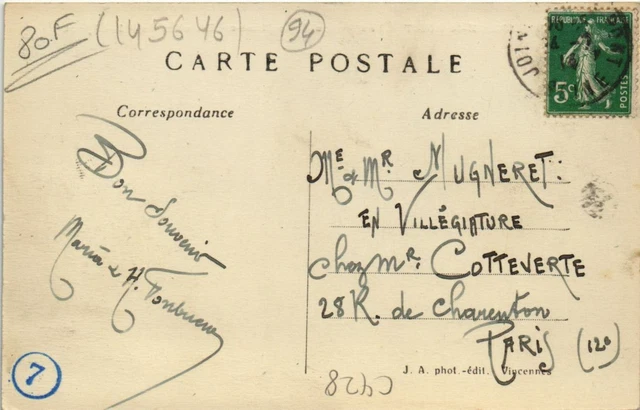 80F (145646) 94
CARTE POSTALE
REPUBLIQUE FRANÇAISE
5c POSTES
JOIN
Correspondance
Adresse
Bon Souvenir
Maria & H.
Me & Mr MUGNERET:
EN VILLÉGIATURE
Chez Mr. COTTEVERTE
28 R. de Charenton
PARIS (12e)
J. A. phot.-édit. Vincennes
C428
7